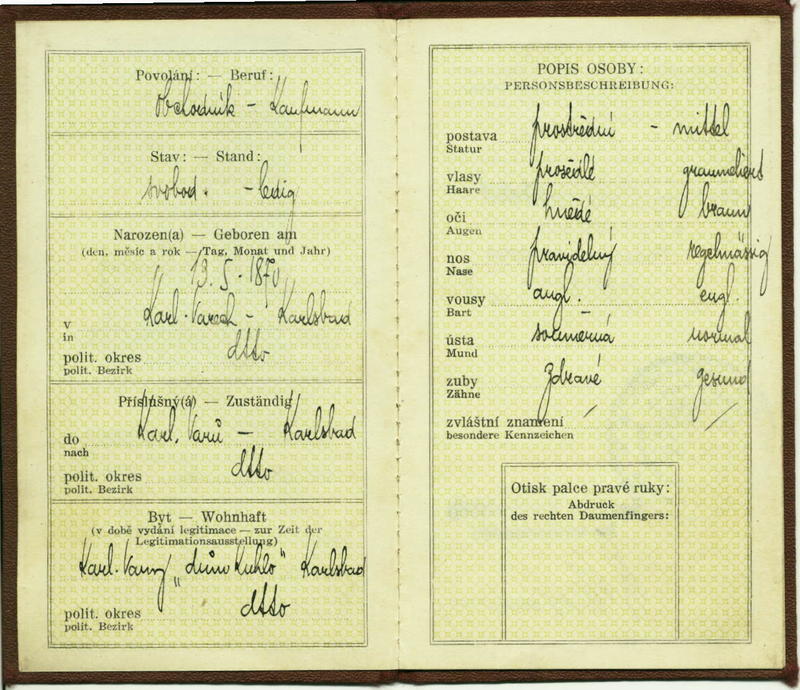 Povolání: — Beruf:
Obchodník - Kaufmann
Stav: — Stand:
svobod. - ledig
Narozen(a) — Geboren am
(den, měsíc a rok — Tag, Monat und Jahr)
13. 5. 1870
v Karl. Varech - Karlsbad
in
polit. okres dtto
polit. Bezirk
Příslušný(á) — Zuständig
do Karl. Varů - Karlsbad
nach
polit. okres dtto
polit. Bezirk
Byt — Wohnhaft
(v době vydání legitimace — zur Zeit der
Legitimationsausstellung)
Karl. Vary „dům Kuhlo“ Karlsbad
polit. okres dtto
polit. Bezirk
POPIS OSOBY:
PERSONSBESCHREIBUNG:
postava prostřední - mittel
Statur
vlasy prošedlé graumeliert
Haare
oči hnědé braun
Augen
nos pravidelný regelmässig
Nase
vousy angl. engl.
Bart
ústa souměrná normal
Mund
zuby zdravé gesund
Zähne
zvláštní znamení / /
besondere Kennzeichen
Otisk palce pravé ruky:
Abdruck
des rechten Daumenfingers: